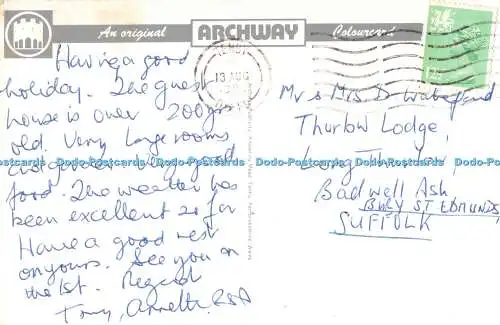 An original ARCHWAY Colourcard
TENBY
13 AUG
Having a good
holiday. The guest
house is over 200yrs
old. Very large rooms
and food. The weather has
been excellent so far
Have a good rest
on yours. See you on
the 1st. Regards
Tony, Annette
Mr & Mrs D
Thurlow Lodge,
Long Thurlow,
Badwell Ash
BURY ST EDMUNDS,
SUFFOLK
Dodo-Postcards Dodo-Postcards Dodo-Postcards Dodo-Postcards Dodo-Postcards Dodo-Postcards